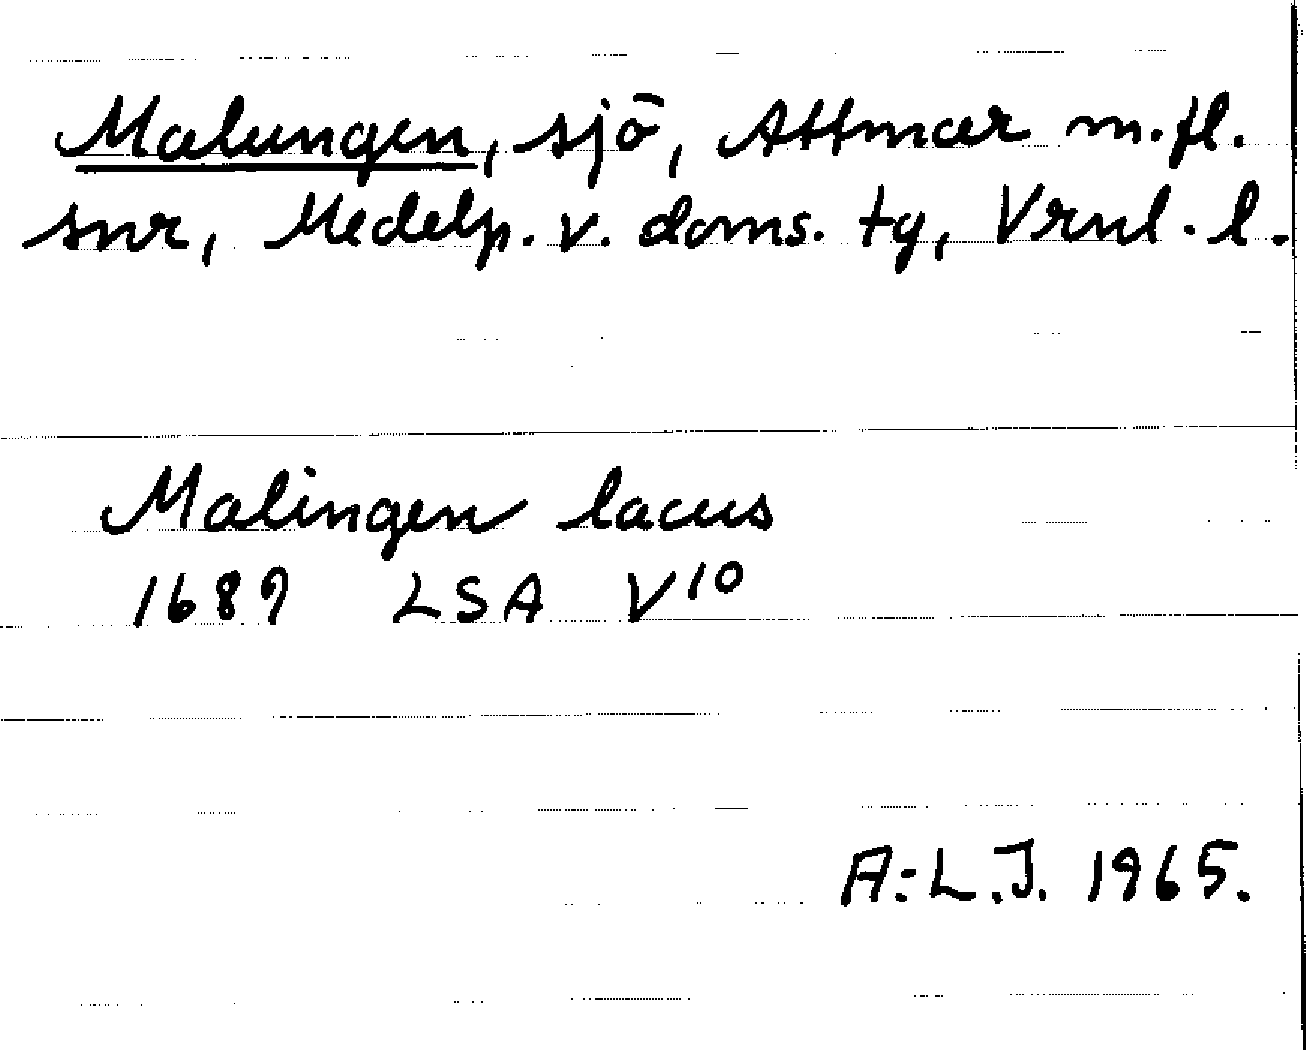 Malungen, sjö, Attmar m.fl.
snr, Medelp. v. doms. tg, Vrnl. l.
Malingen lacus
1689 LSA V10
A.-L.J. 1965.